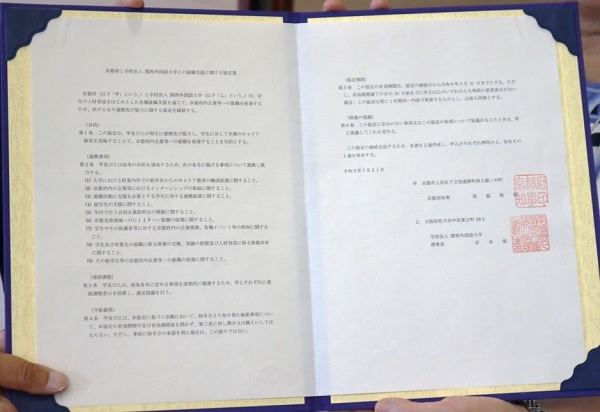 京都府と学校法人 関西外国語大学との就職支援に関する協定書
京都府（以下「甲」という。）と学校法人 関西外国語大学（以下「乙」という。）は、学
生の人材育成をはじめとした各種就職支援を通じて、京都府内企業等への就職を促進する
ため、次のとおり連携及び協力に関する協定を締結する。
（目的）
第１条 この協定は、甲及び乙が相互に連携及び協力し、学生に対して早期のキャリア
教育を実施することで、京都府内の企業等への就職を促進することを目的とする。
（連携事項）
第２条 甲及び乙は前条の目的を達成するため、次の各号に掲げる事項について連携し協
力する。
(1) 大学における授業内外での
(2) 京都府内の企業等におけるインターンシップの取組に関すること。
(3) 就職活動に支援を必要とする学生に対する連携促進に関すること。
(4) 留学生の支援に関すること。
(5) 学内で行う合同企業説明会の開催に関すること。
(6) 京都北部地域へのＵＩＪターン就職の促進に関すること。
(7) 学生やその保護者等に対する京都府内の企業情報、各種イベント等の周知に関する
こと。
(8) 学生及び卒業生の就職に係る情報の交換、実績の把握及び人材育成に係る情報共有
に関すること。
(9) その他学生等の京都府内企業等への就職の促進に関すること。
（連絡調整）
第３条 甲及び乙は、前条各号に定める事項を効果的に推進するため、甲乙それぞれに連
絡調整窓口を設置し、適宜協議を行う。
（守秘義務）
第４条 甲及び乙は、本協定に基づく活動において、相手方より知り得た秘密事項につい
て、本協定の有効期間中及び有効期間後を問わず、第三者に対し開示又は漏えいしては
ならない。ただし、事前に相手方の承諾を得た場合は、この限りではない。
（協定期間）
第５条 この協定の有効期間は、協定の締結日から令和８年３月31日までとする。ただ
し、有効期間満了の日の30日前までに甲又は乙のいずれからも特段の意思表示がない
場合、この協定は更に１年間同一内容で更新するものとし、以後も同様とする。
（疑義の協議）
第６条 この協定に定めのない事項又はこの協定の事項について疑義が生じたときは、甲
乙協議してこれを定める。
この協定の締結を証するため、本書を２通作成し、甲乙がそれぞれ押印の上、各自その
１通を保有する。
令和７年７月２１日
甲 京都市上京区下立売通新町西入薮ノ内町
京都府知事 西脇 隆俊
乙 大阪府枚方市中宮東之町16-1
学校法人 関西外国語大学
理事長 谷本